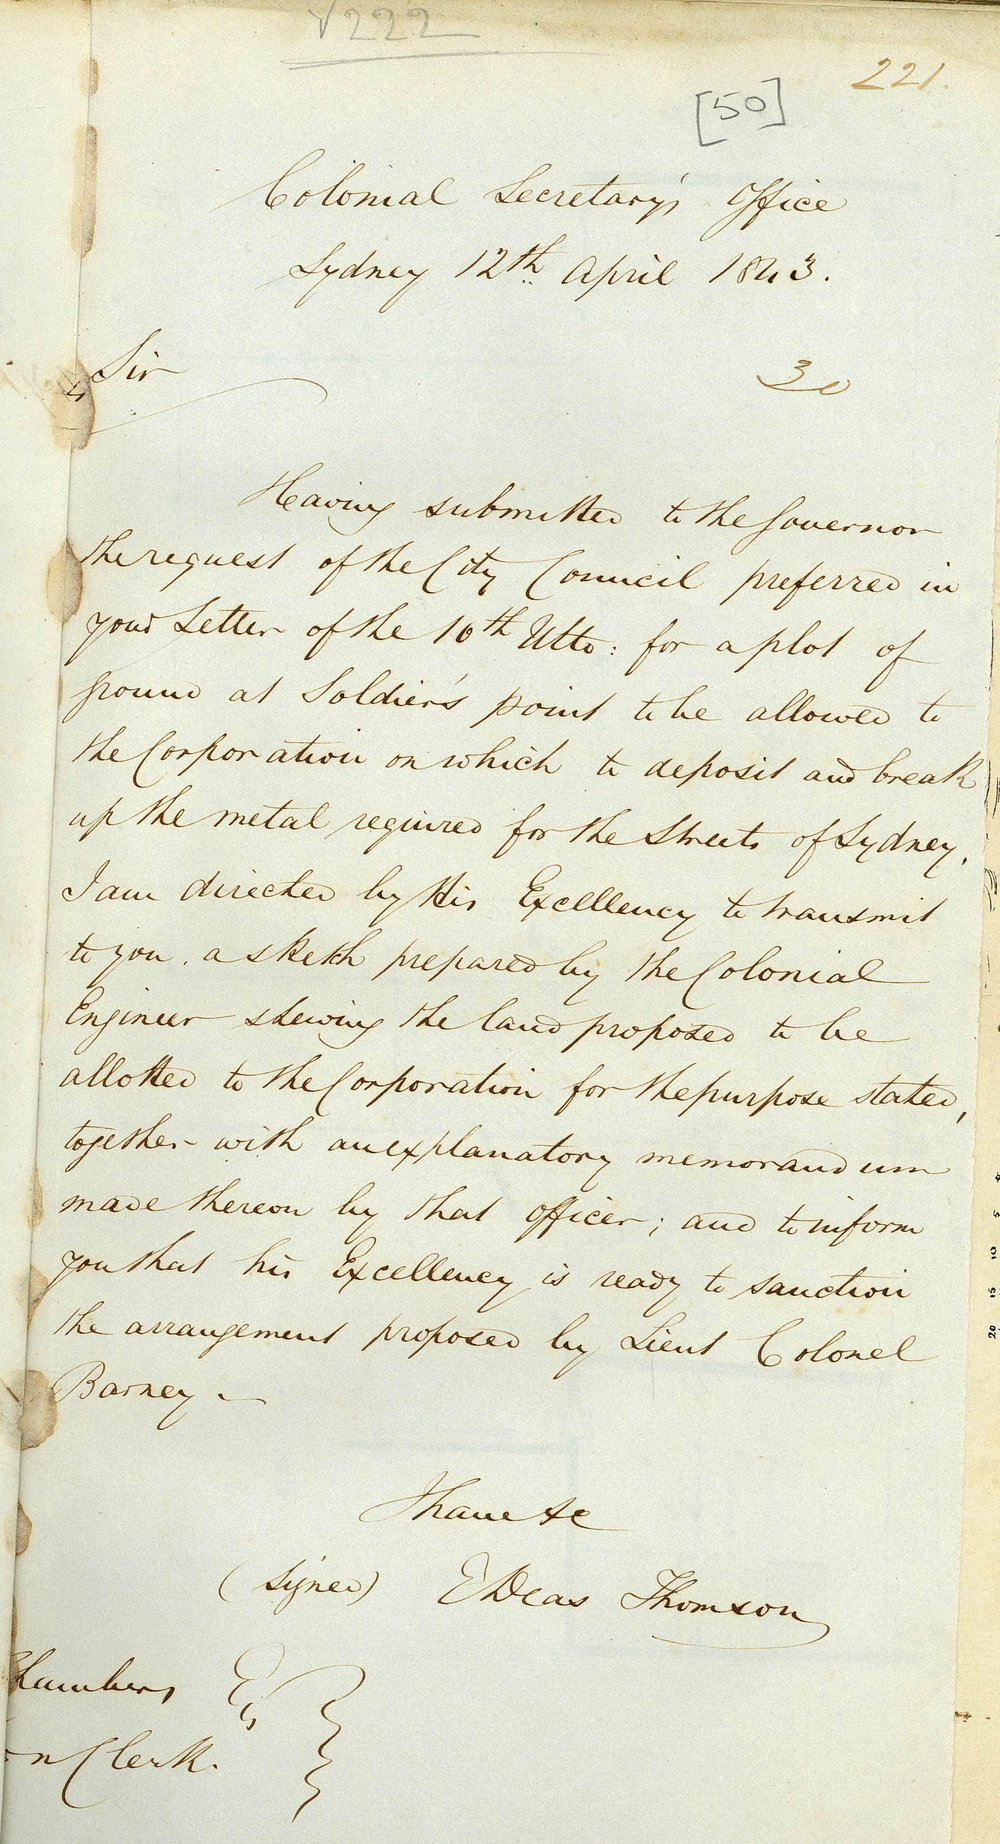 √222
221.
[50]
Colonial Secretary's Office
Sydney 12th April 1843.
Sir
30
Having submitted to the Governor
the request of the City Council preferred in
your Letter of the 10th Ulto: for a plot of
ground at Soldier's point to be allowed to
the Corporation on which to deposit and break
up the metal required for the Streets of Sydney,
I am directed by His Excellency to transmit
to you a sketch prepared by the Colonial
Engineer shewing the land proposed to be
allotted to the Corporation for the purpose stated,
together with an explanatory memorandum
made thereon by that officer; and to inform
you that his Excellency is ready to sanction
the arrangement proposed by Lieut Colonel
Barney –
I have &c
(Signed) E Deas Thomson
Chambers Esq
n Clerk.
5
10
15
20